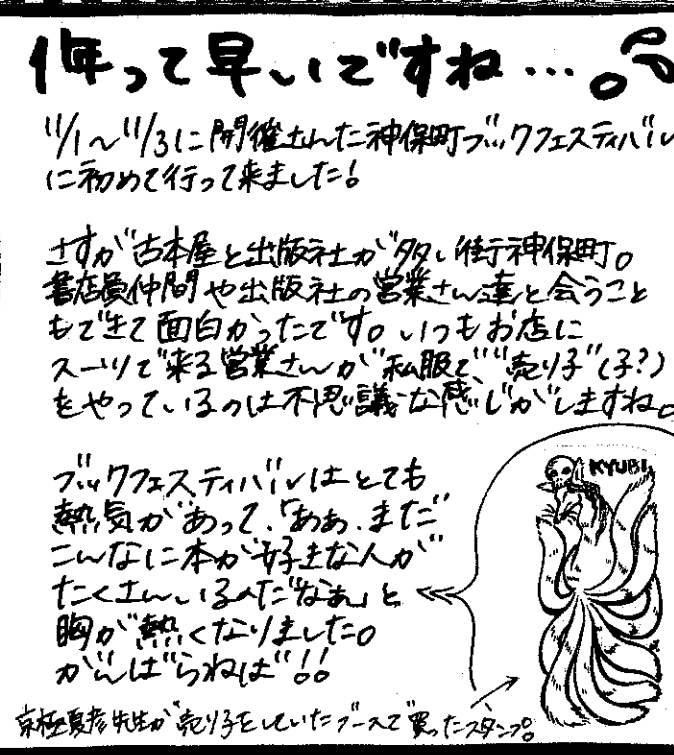 1年って早いですね…。
11/1~11/3に開催された神保町ブックフェスティバル
に初めて行って来ました!
さすが古本屋と出版社が多い街神保町。
書店員仲間や出版社の営業さん達と会うこと
もできて面白かったです。いつもお店に
スーツで来る営業さんが私服で"売り子"(子?)
をやっているのは不思議な感じがしますね。
ブックフェスティバルはとても
熱気があって、「ああ、まだ
こんなに本が好きな人が
たくさんいるんだなぁ」と
胸が熱くなりました。
がんばらねば!!
KYUBI
京極夏彦先生が売り子をしていたブースで買ったスタンプ。